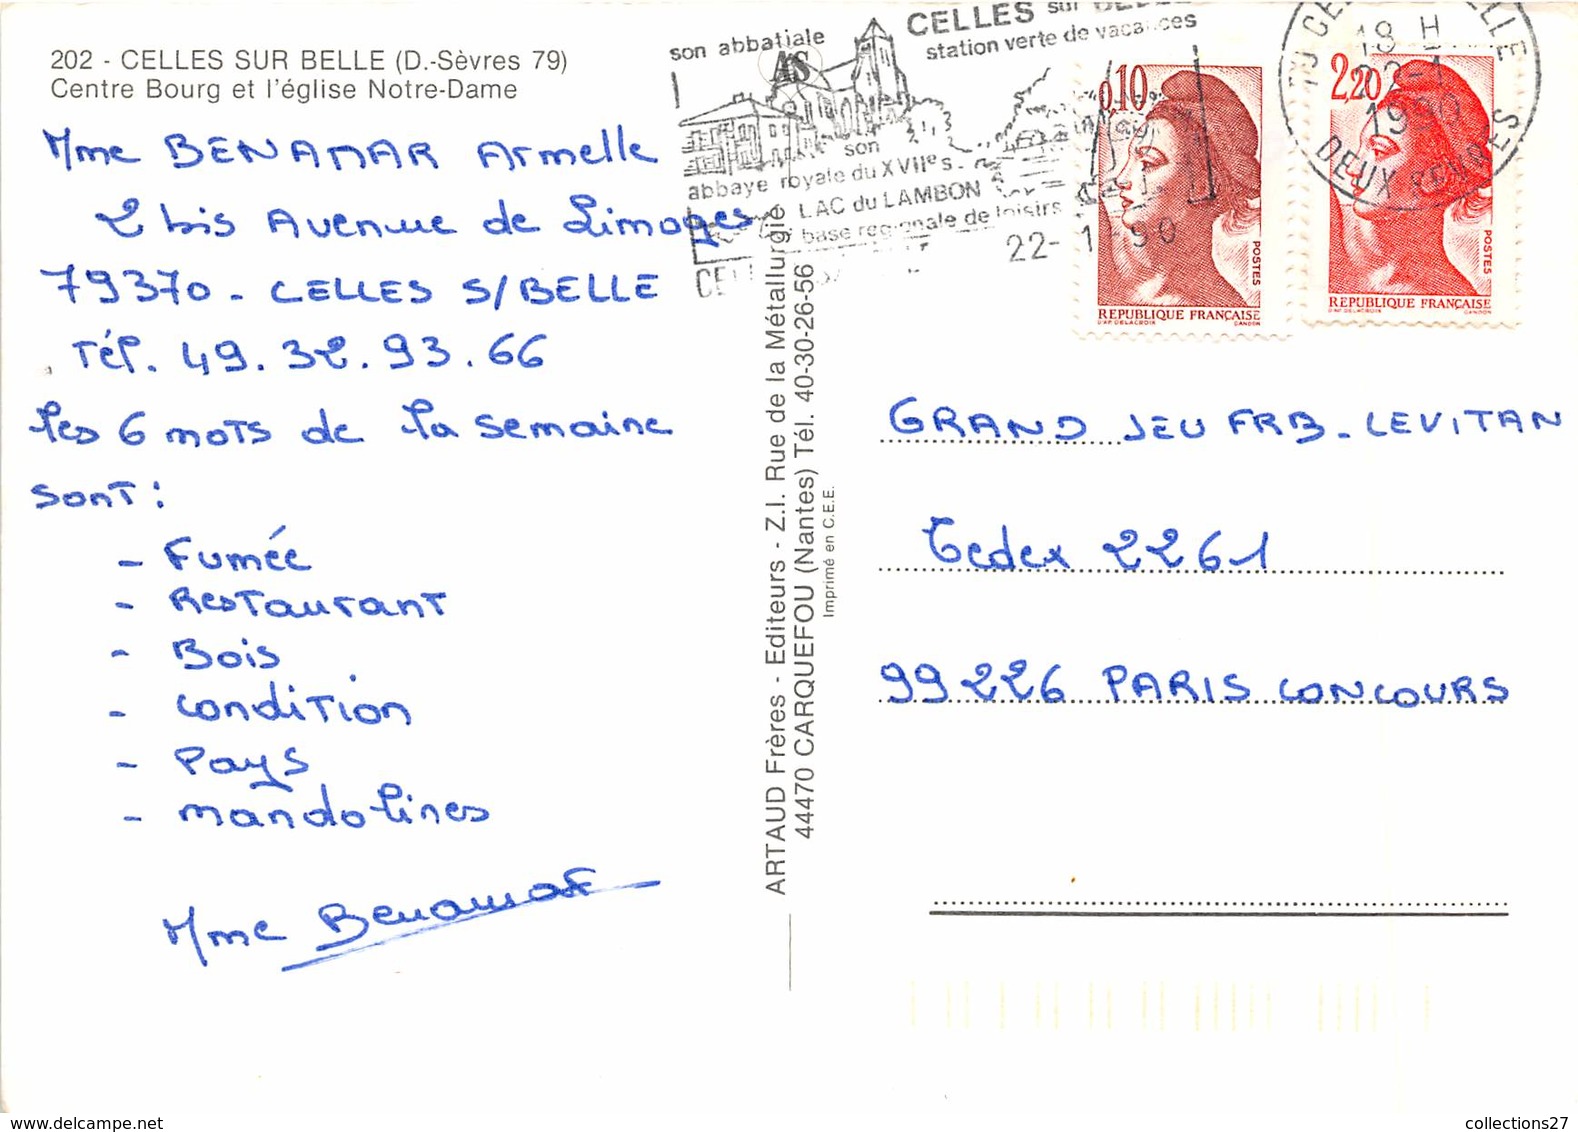 202 - CELLES SUR BELLE (D.-Sèvres 79)
Centre Bourg et l'église Notre-Dame
Mme BENAMAR Armelle
2 bis Avenue de Limoges
79370 - CELLES S/BELLE
Tél. 49. 32. 93. 66
les 6 mots de la semaine
sont :
- Fumée
- Restaurant
- Bois
- condition
- Pays
- mandolines
Mme Benamar
son abbatiale
CELLES sur BELLE
station verte de vacances
son
abbaye royale du XVIIe s.
LAC du LAMBON
base regionale de loisirs
22-1 90
AS
ARTAUD Frères - Editeurs - Z.I. Rue de la Métallurgie
44470 CARQUEFOU (Nantes) Tél. 40-30-26-56
Imprimé en C.E.E.
0,10
POSTES
REPUBLIQUE FRANÇAISE
D'AP. DELACROIX GANDON
2,20
POSTES
REPUBLIQUE FRANÇAISE
D'AP. DELACROIX GANDON
18 H
22-1
1990
DEUX SEVRES
GRAND JEU FRB - LEVITAN
Cedex 2261
99226 PARIS CONCOURS
collections27